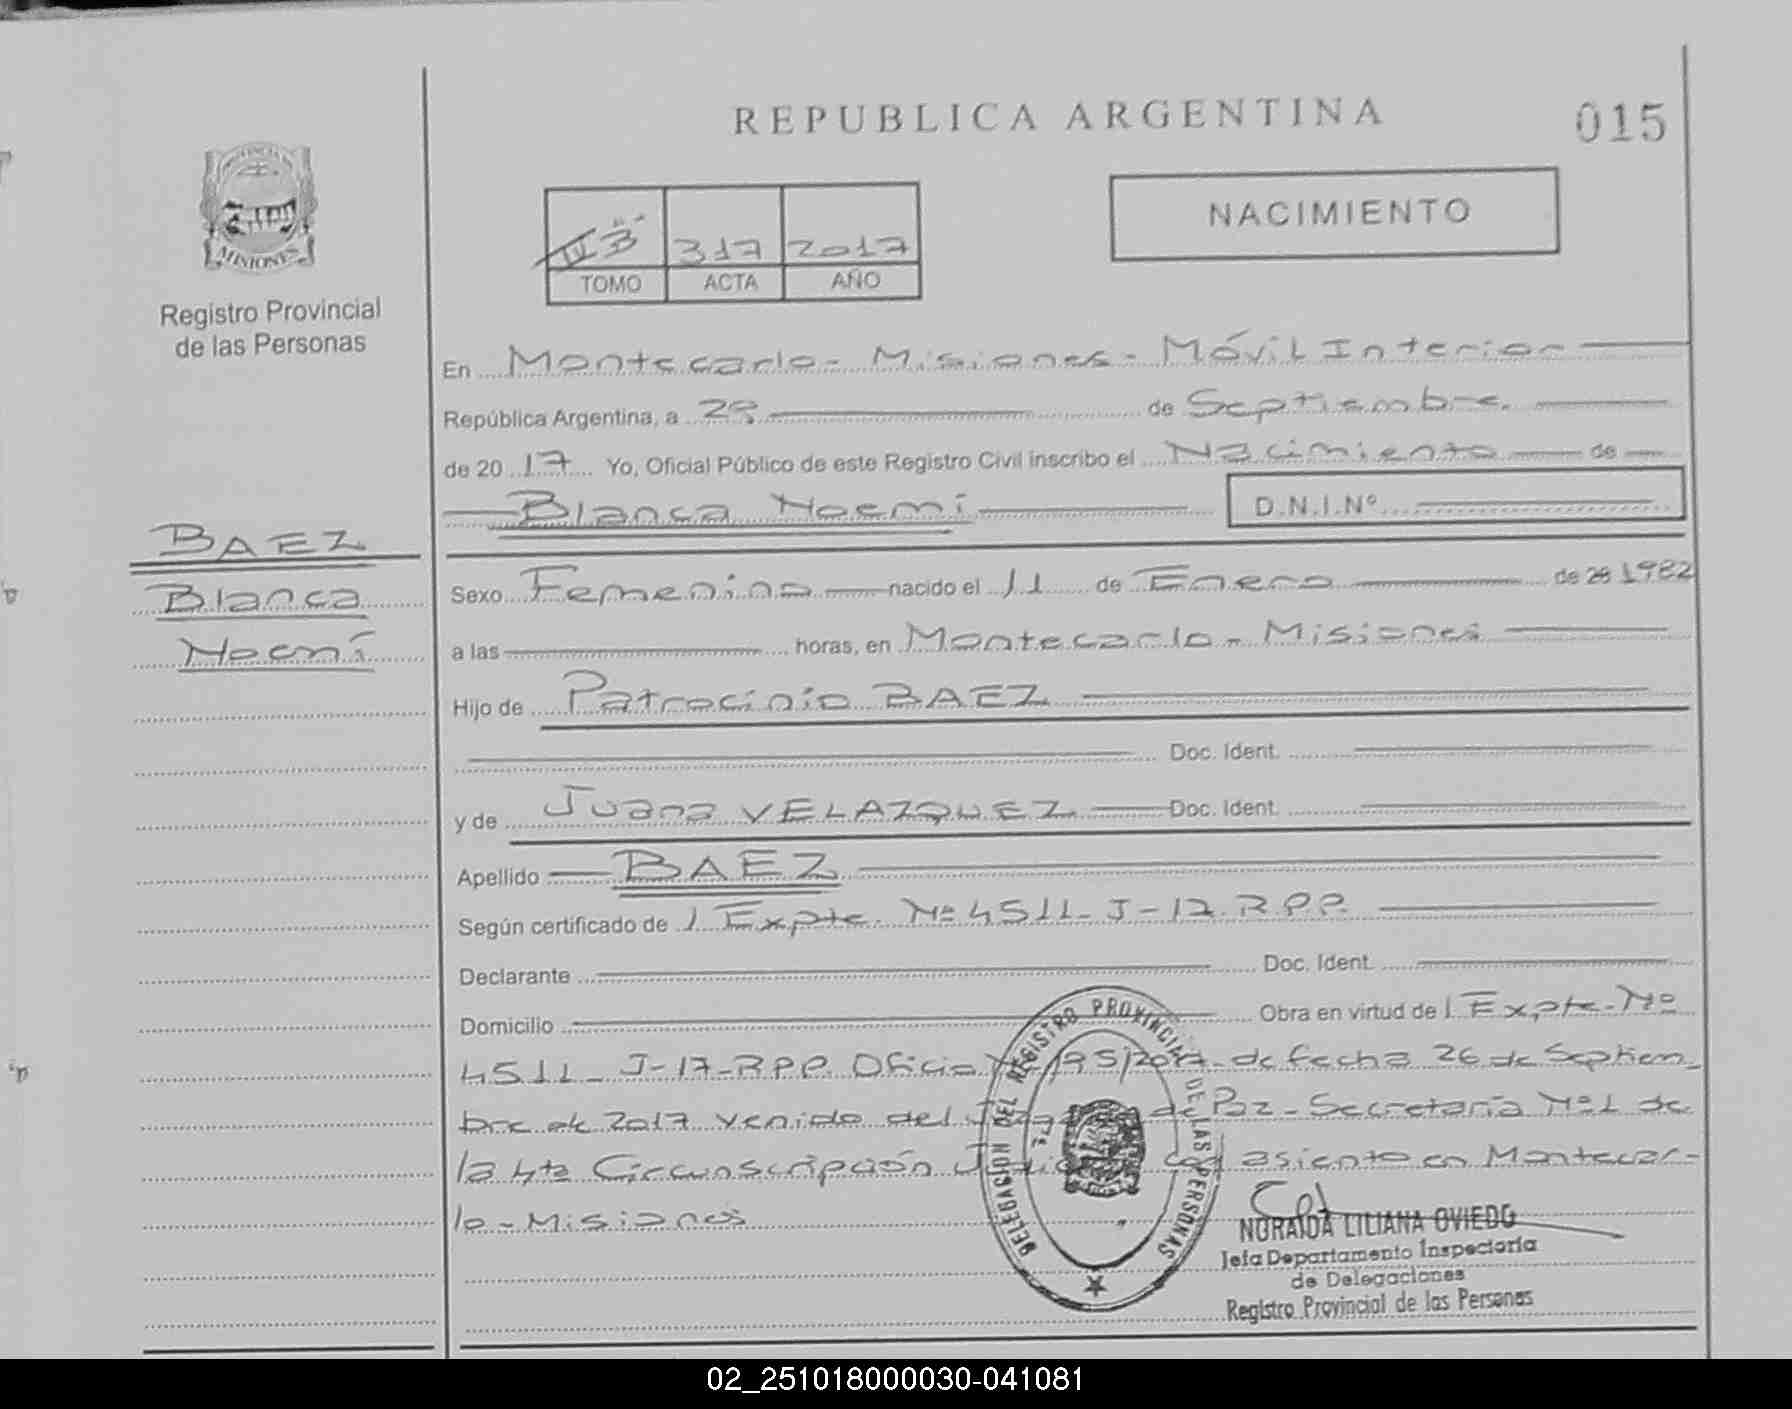 REPUBLICA ARGENTINA
015
PROVINCIA DE
MISIONES
Registro Provincial
de las Personas
NACIMIENTO
IV "B" 317 2017
TOMO ACTA AÑO
En Montecarlo - Misiones - Móvil Interior
República Argentina, a 29 de Septiembre
de 2017 Yo, Oficial Público de este Registro Civil inscribo el Nacimiento de
Blanca Noemí D.N.I.Nº
BAEZ
Blanca
Noemí
Sexo Femenino nacido el 11 de Enero de 20 1982
a las horas, en Montecarlo - Misiones
Hijo de Patrocinio BAEZ
Doc. Ident.
y de Juana VELAZQUEZ Doc. Ident.
Apellido BAEZ
Según certificado de / Expte. Nº 4511-J-17. R.P.P.
Declarante Doc. Ident.
Domicilio Obra en virtud de / Expte. Nº
4511-J-17-RPP. Oficio 195/2017 de fecha 26 de Septiem-
bre de 2017 venido del de Paz - Secretaría Nº 1 de
la 4ta Circunscripción con asiento en Montecar-
lo - Misiones
DELEGACION DEL REGISTRO PROVINCIAL DE LAS PERSONAS
NORAIDA LILIANA OVIEDO
Jefa Departamento Inspectoria
de Delegaciones
Registro Provincial de las Personas
02_251018000030-041081